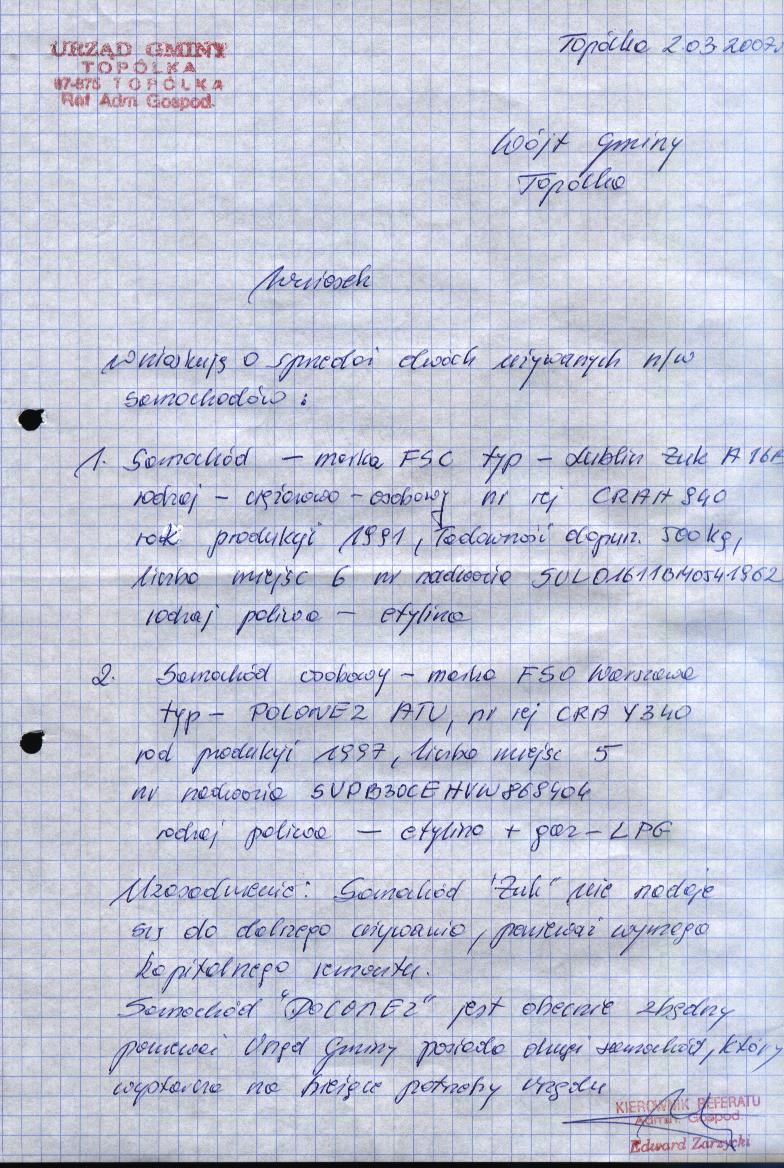 URZĄD GMINY
TOPÓLKA
87-875 TOPÓLKA
Ref Adm. Gospod.
Topólka 2.03.2007r
Wójt Gminy
Topólka
Wniosek
Wnioskuję o sprzedaż dwóch używanych n/w
samochodów :
1. Samochód – marka FSC typ – Lublin Żuk A 16B
rodzaj – ciężarowo – osobowy nr rej CRAH 940
rok produkcji 1991, ładowność dopusz. 500 kg,
liczba miejsc 6 nr nadwozia SUL01611BM0541962
rodzaj paliwa – etylina
2. Samochód osobowy – marka FSO Warszawa
typ – POLONEZ ATU, nr rej CRA Y340
rok produkcji 1997, liczba miejsc 5
nr nadwozia SUPB30CEHVW868404
rodzaj paliwa – etylina + gaz – LPG
Uzasadnienie: Samochód "Żuk" nie nadaje
się do dalszego używania, ponieważ wymaga
kapitalnego remontu.
Samochód "POLONEZ" jest obecnie zbędny
ponieważ Urząd Gminy posiada drugi samochód, który
wystarcza na bieżące potrzeby Urzędu
KIEROWNIK REFERATU
Admin. Gospod.
Edward Zarzycki